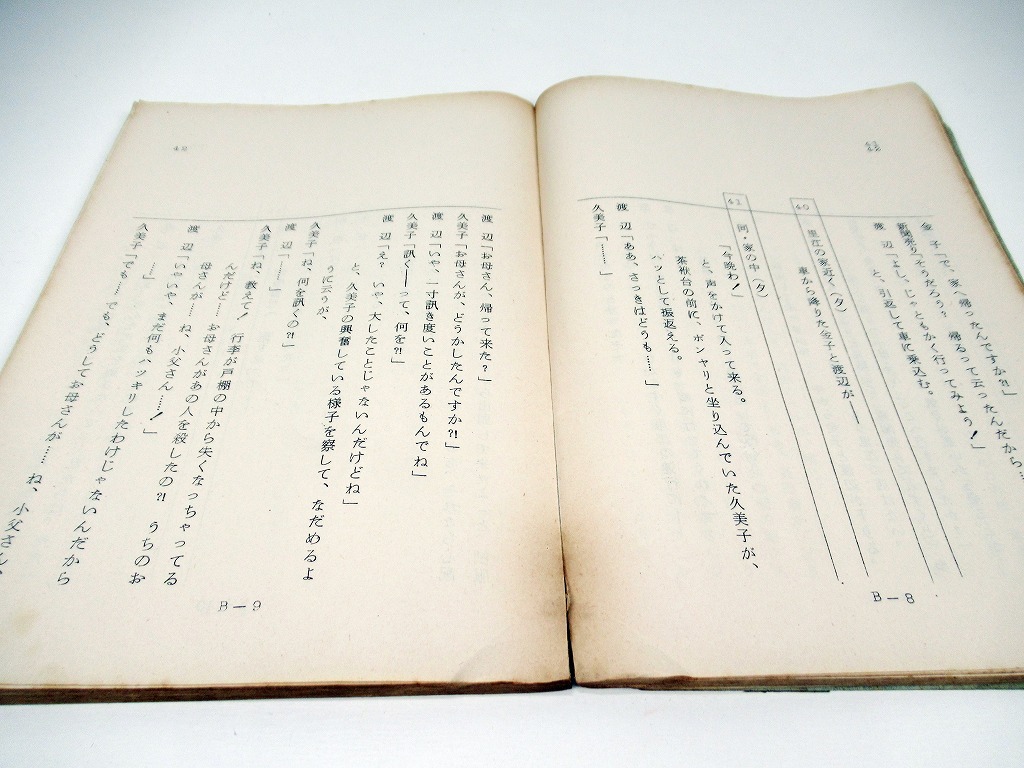 金子「で、家へ帰ったんですか?!」
新聞売り「そうだろう? 帰るって云ったんだから…
渡辺「よし、じゃともかく行ってみよう!」
と、引返して車に乗込む。
40 里江の家近く(夕)
車から降りた金子と渡辺が――
41 同・家の中(夕)
「今晩わ!」
と、声をかけて入って来る。
茶袱台の前に、ボンヤリと坐り込んでいた久美子が、
ハッとして振返える。
渡辺「ああ、さっきはどうも……」
久美子「………」
B-8
渡辺「お母さん、帰って来た?」
久美子「お母さんが、どうかしたんですか?!」
渡辺「いや、一寸訊き度いことがあるもんでね」
久美子「訊く――って、何を?!」
渡辺「え? いや、大したことじゃないんだけどね」
と、久美子の興奮している様子を察して、なだめるよ
うに云うが、
久美子「ね、何を訊くの?!」
渡辺「………」
久美子「ね、教えて! 行李が戸棚の中から失くなっちゃってる
んだけど…… お母さんがあの人を殺したの?! うちのお
母さんが…… ね、小父さん……!」
渡辺「いやいや、まだ何もハッキリしたわけじゃないんだから
……」
久美子「でも……でも、どうしてお母さんが…… ね、小父さん、
42
B-9